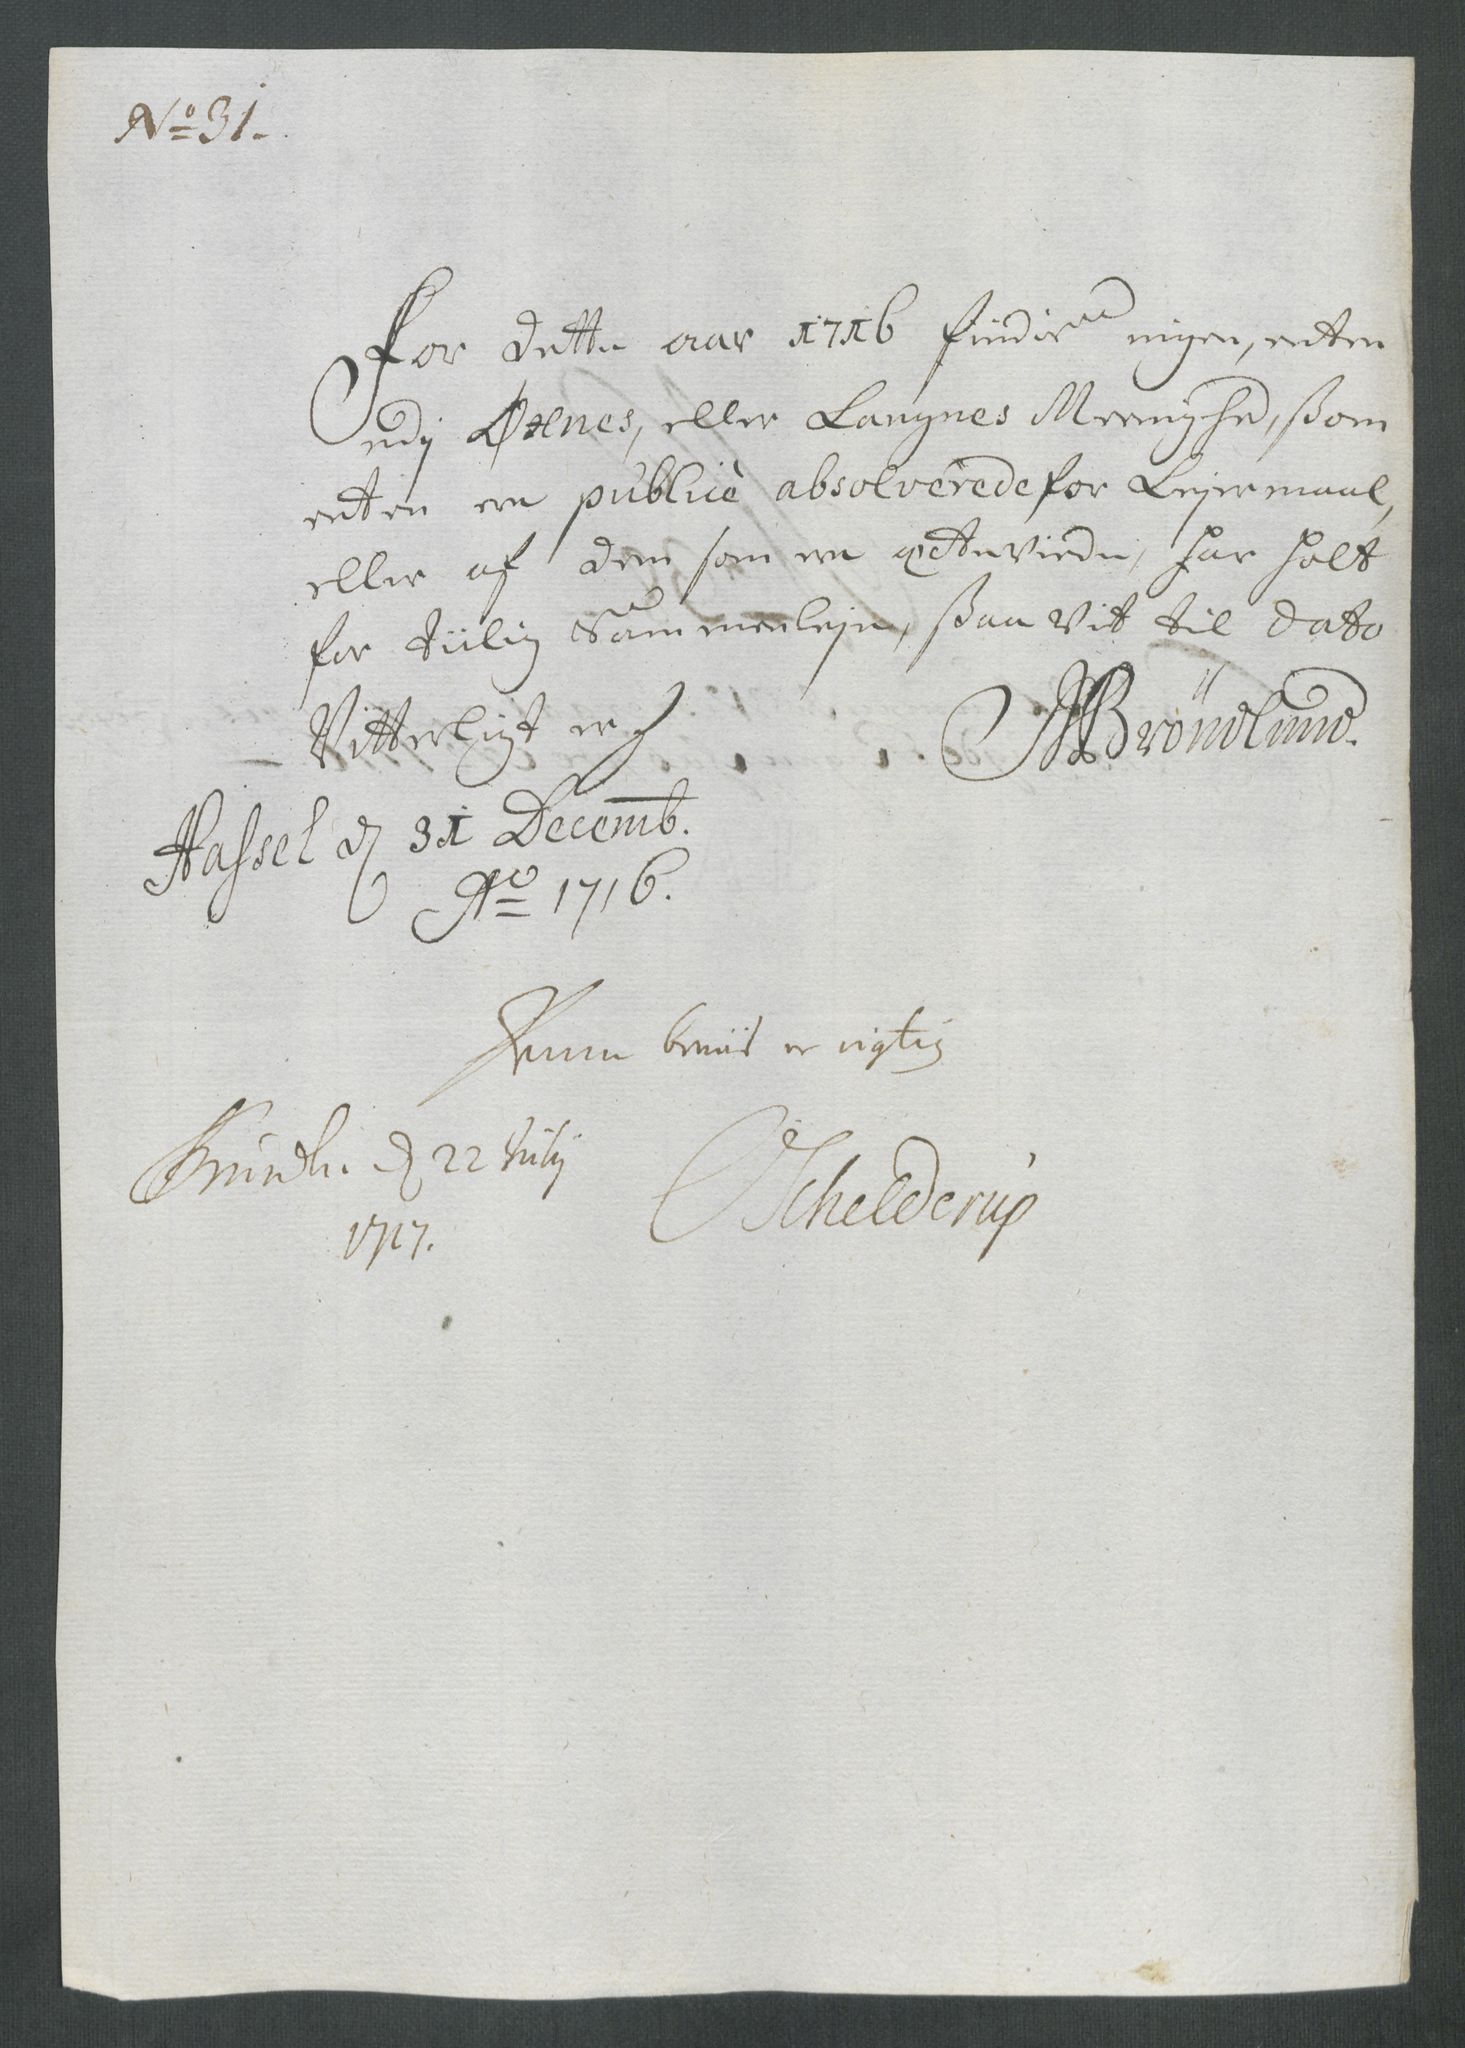 No 31.
For dette aar 1716 findis ingen, enten
udj Øxnes, eller Langnes Meenighed, ßom
enten ere publicè absolverede for Lejermaal,
eller af dem som ere ecteviede, har holt
for tiilig Sammenleje, ßaa vit til dato
Vitterligt er
MBröndlund.
Hassel d 31 Decemb.
Ao 1716.
Denne beviis er rigtig
d 22 Julij
1717.
Schelderup